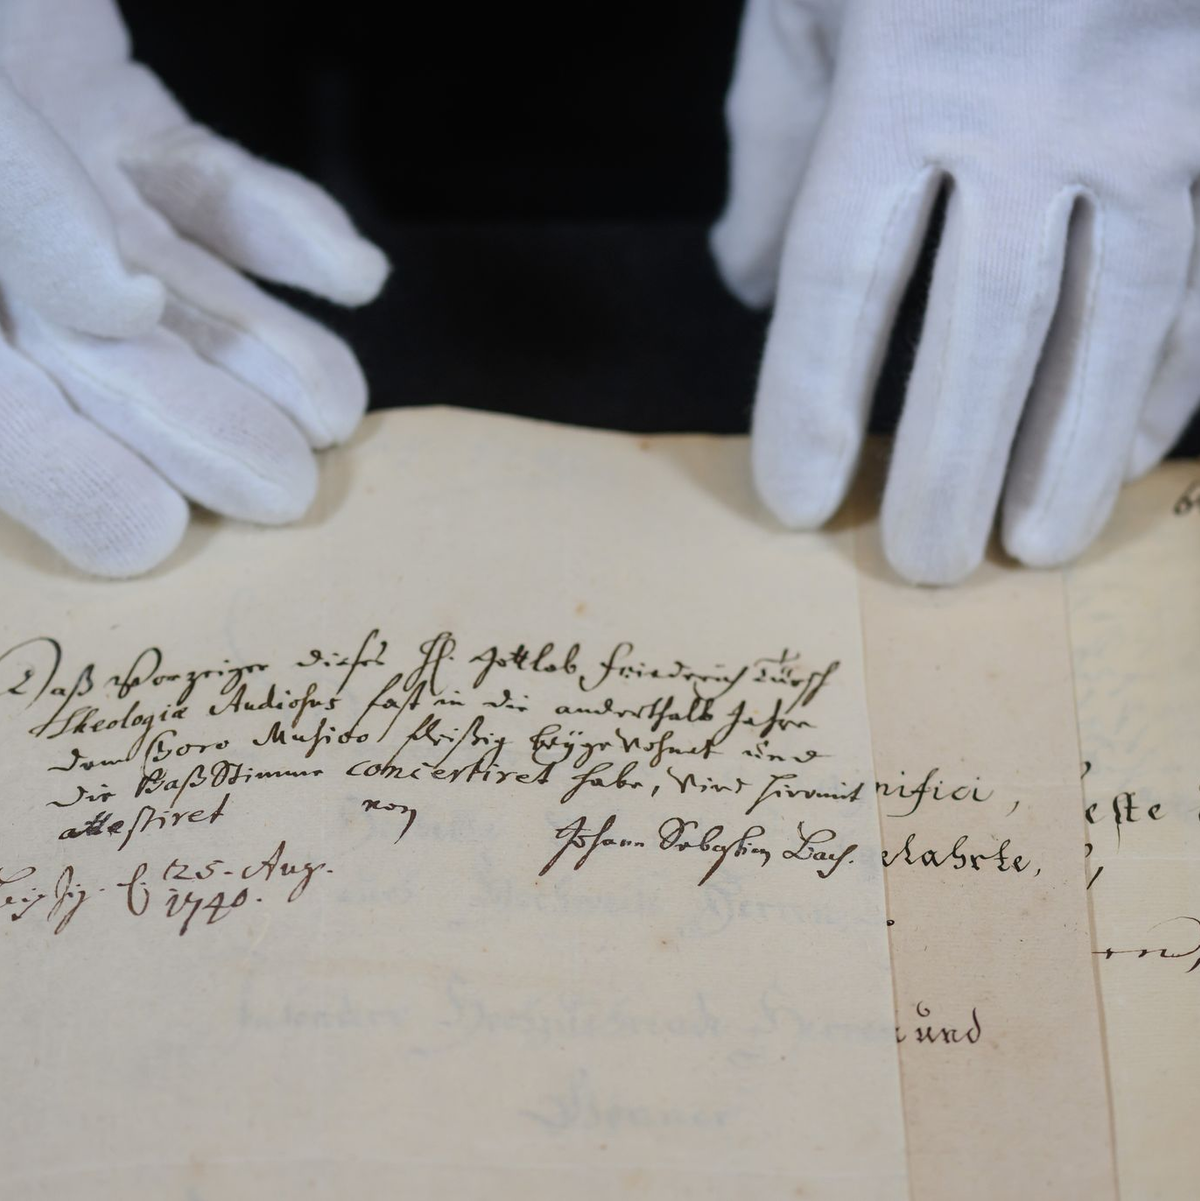 Daß Vorzeiger dieses H. Gottlob Friedrich Türsch
Theologiæ Studiosus fast in die anderthalb Jahre
dem Choro Musico fleißig beygewohnet und
die Baß Stimme concertiret habe, wird hiermit
attestiret von
Johann Sebastian Bach.
Leipzig. d. 25. Aug.
1740.
nifici,
elahrte,
und
este